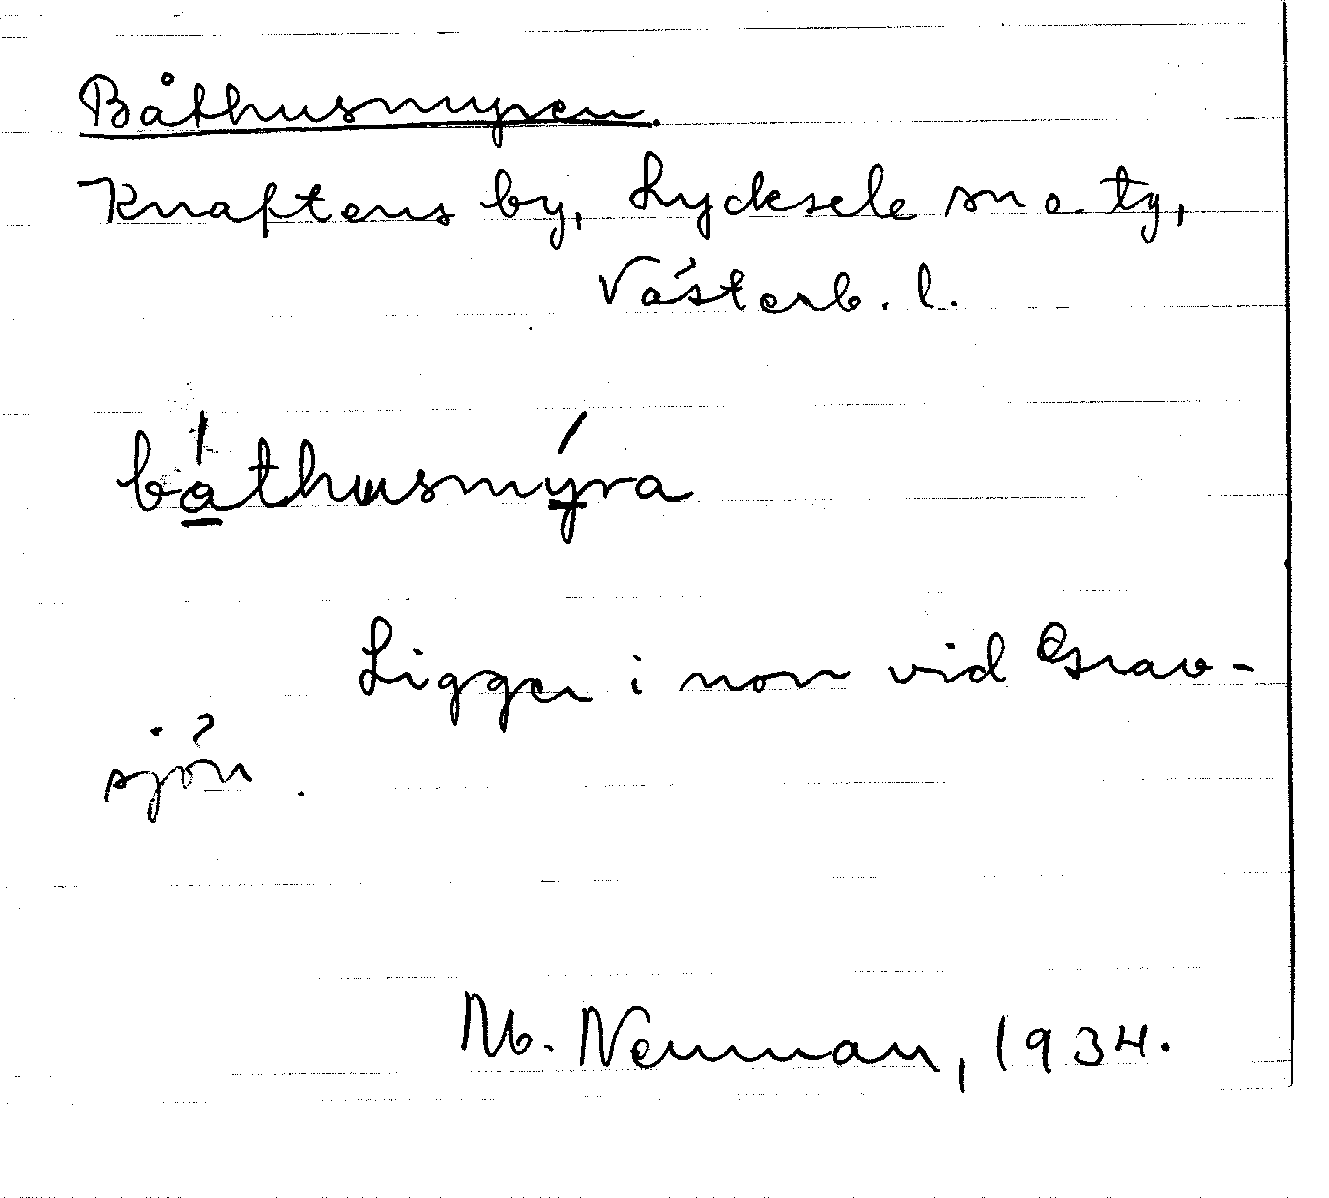 Båthusmyren.
Knaftens by, Lycksele sn o. tg,
Västerb. l.
båthusmýra
Ligger i norr vid Grav-
sjön.
M. Neuman, 1934.